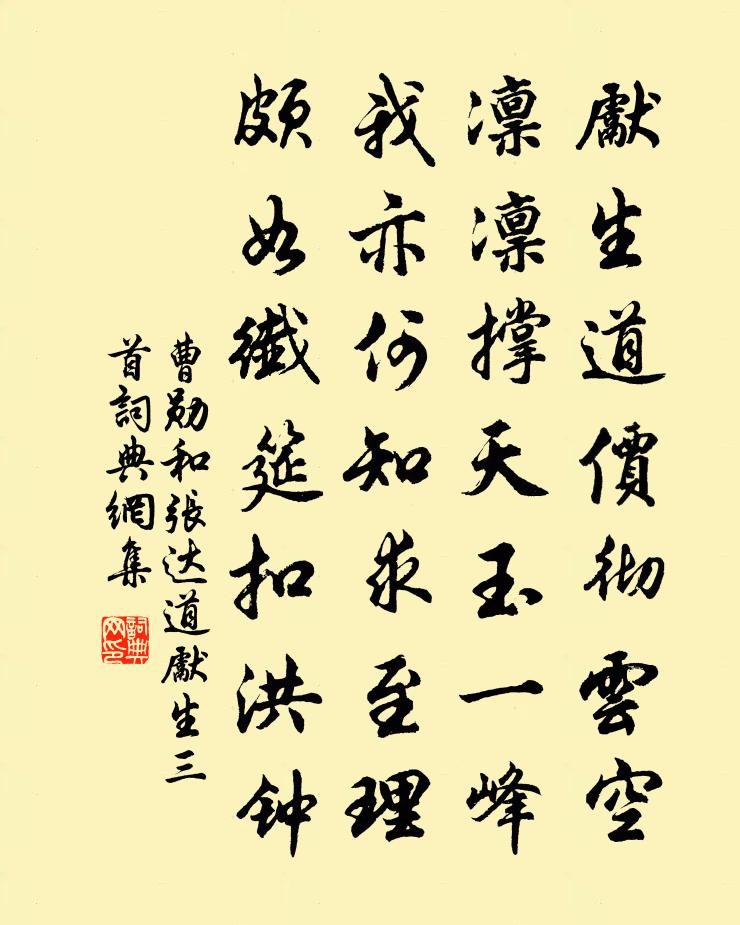 獻生道價彻雲空
凛凛撑天玉一峰
我亦何知求至理
頗如纖筵扣洪钟
曹勋和張达道獻生三
首詞典網集
詞典
网印